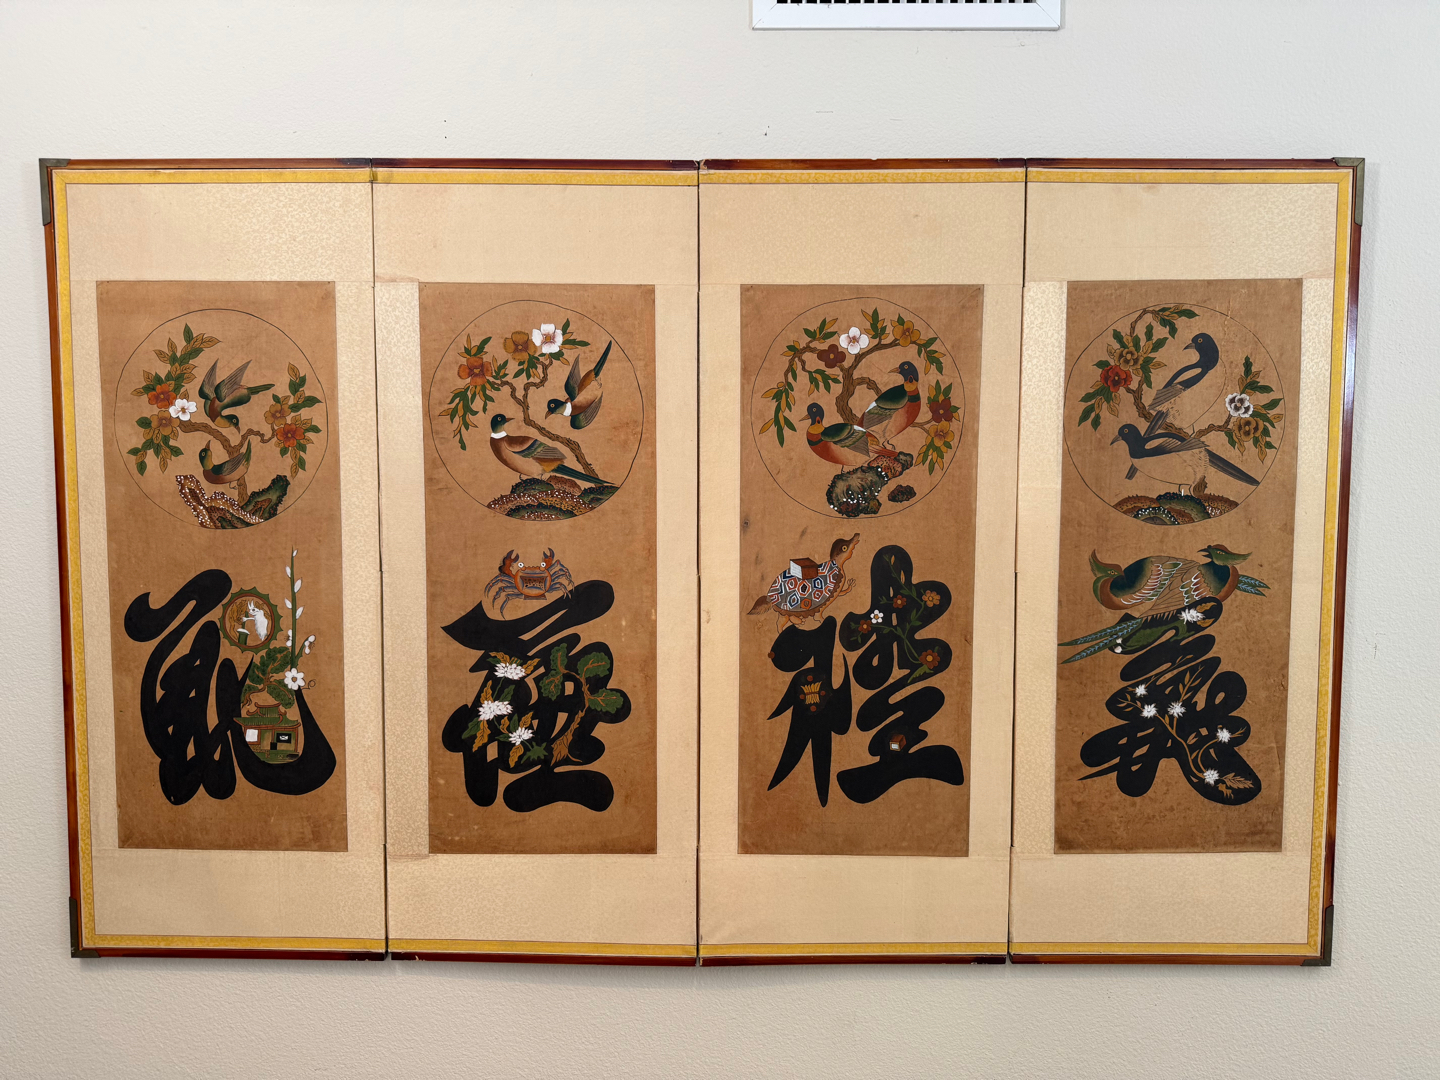 義
禮
廉
恥